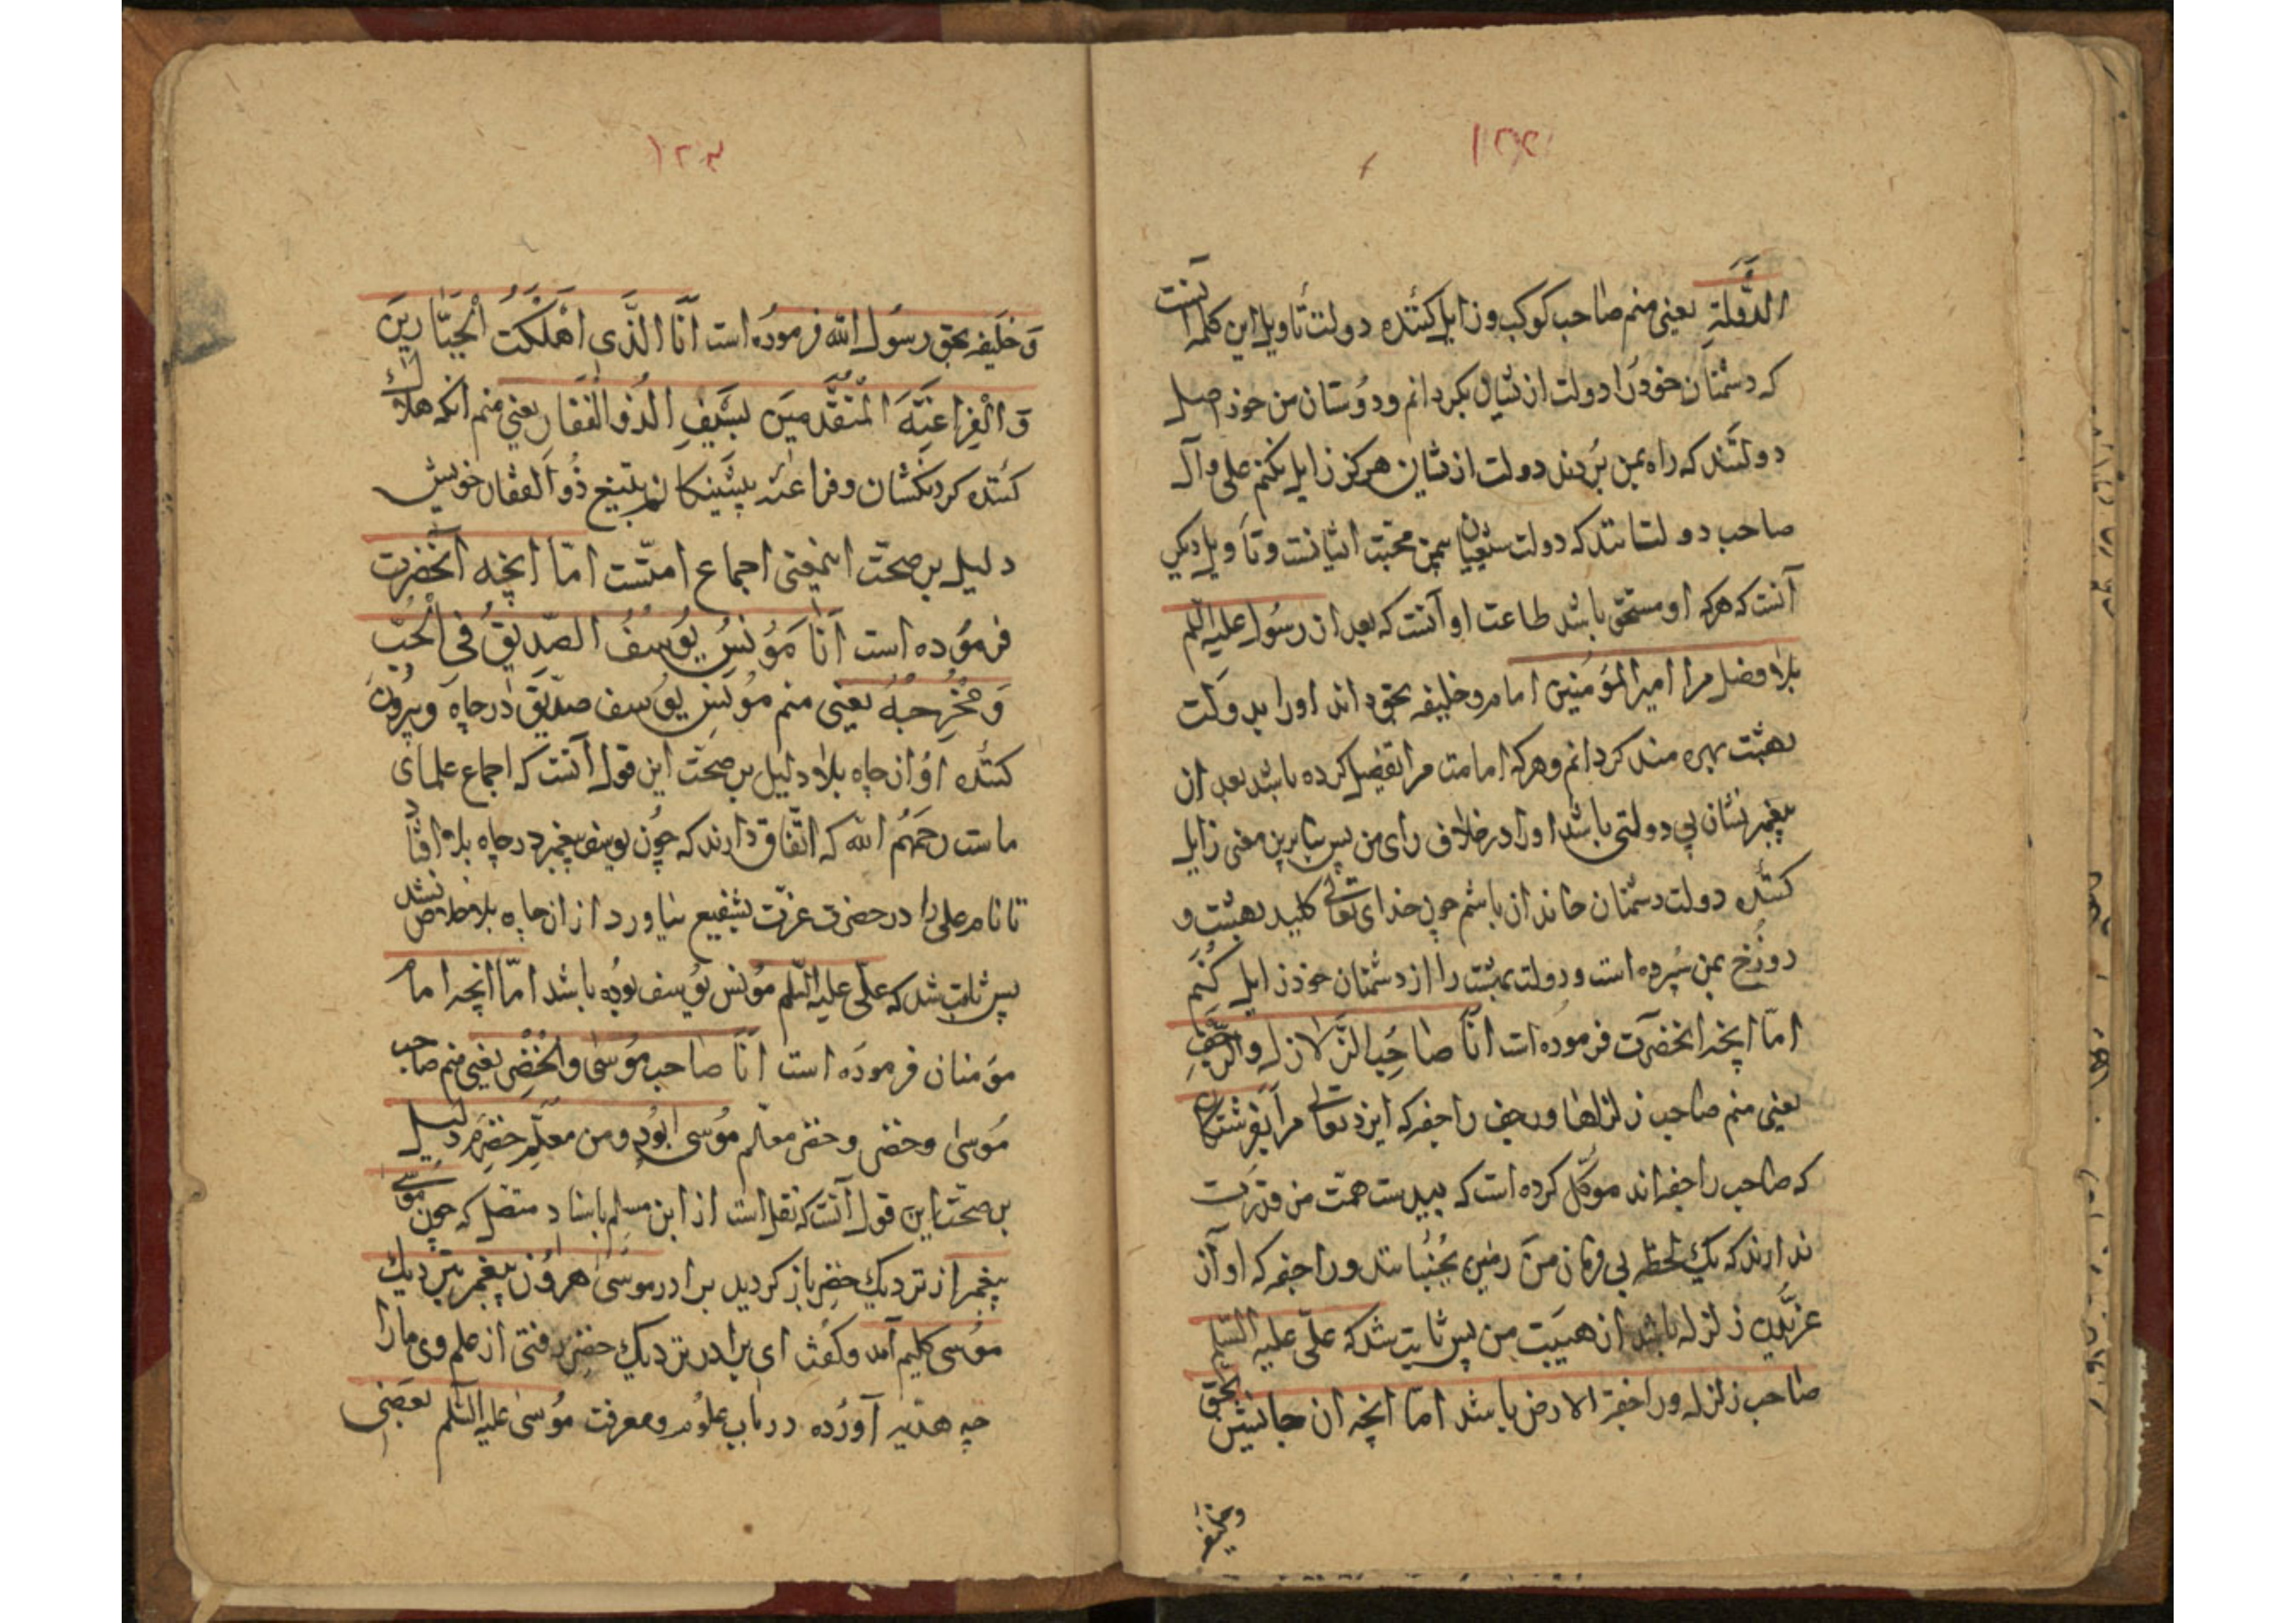 ۱۲۲
الدَّولَةِ یعنی منم صاحب کوکب و زایل کنندهٔ دولت تأویل این کلمه آنست
که دشمنان خود را دولت ازیشان بکردانم و دوستان من خود اصل
دولتند که راه بمن بردند دولت ازیشان هرکز زایل نکنم علی و آل
صاحب دولتانند که دولت شیعیان بیمن محبت ایشانست و تأویل دیکر
آنست که هرکه او مستحق باشد طاعت او آنست که بعد از رسول علیه السّلم
بلافصل مرا امیر المؤمنین امام و خلیفه بحق داند او را بدولت
بهشت بهره مند کردانم و هرکه امامت مرا تفضیل کرده باشد بعد از
پیغمبر نشان بی دولتی باشد او را در خلاف رای من پس بنابرین معنی زایل
کنندهٔ دولت دشمنان خاندان باشم چون خدای تعالی کلید بهشت و
دوزخ بمن سپرده است و دولت بهشت را از دشمنان خود زایل کُنَم
امّا انچه انحضرت فرموده است انا صاحِبُ الزّلازل والرّجف
یعنی منم صاحب زلزلها و رجف راجفه که ایزد تعالی مرا بفرشتکان
که صاحب راجفه‌اند موکّل کرده است که بیدست همت من قدرت
ندارند که یک لحظه بی فرمان من زمین بجُنبانند و راجفه که او از
زلزله باشد از هیبت من پس ثابت شد که علی علیه السّلم
صاحب زلزله و راجفة الارض باشد امّا انچه ان جانشین بحق
وخلیفه
۱۲۳
وَ خلیفه بحق رسُول الله فرموده است اَنَا الَّذی اَهْلَکْتُ الْجَبّارینَ
وَ الْفِراعَنَةَ الْمُتَقَدِّمینَ بِسَیْفِ الذُو الْفَقارِ یعنی منم انکه هلاک
کنندهٔ کردنکشان و فراعنهٔ پیشینکانم بتیغ ذُوالفقار خویش
دلیل بر صحّت اینمعنی اجماع امتست امّا انچه آنحضرت
فرمُوده است اَنَا مُؤنسُ یُوسُفُ الصّدیقُ فی الْجُبّ
وَ مُخْرِجُهُ یعنی منم مونس یُوسف صدّیق در چاه و بیرون
کنندهٔ او از چاه بلا دلیل بر صحّت این قول آنست که اجماع علمای
ماست رحمَهُم الله که اتّفاق دارند که چون یوسف پیغمبر در چاه بلا افتاد
تا نام علی را در حضرت عزّت بشفیع نیاورد از ان چاه بلا خلاص نشد
پس ثابت شد که علی علیه السّلم مونس یُوسف بُوده باشد امّا انچه امام
مؤمنان فرموده است انا صاحب موسی والخضر یعنی منم صاحب
مُوسی و خضر و خضر معلم مُوسی بُود و من معلّم خضرم دلیل
بر صحّت این قول آنست که نقل است از ابن مسلم باسناد متصل که چون موسی
پیغمبر از نزدیک خضر باز کردید برادر موسی هرُون پیغمبر نزدیک
مُوسی کلیم آمد و کفت ای برادر نزدیک خضر رفتی از علم وی ما را
چه هدیه آورده در باب علوم و معرفت مُوسی علیه السّلم بعضی